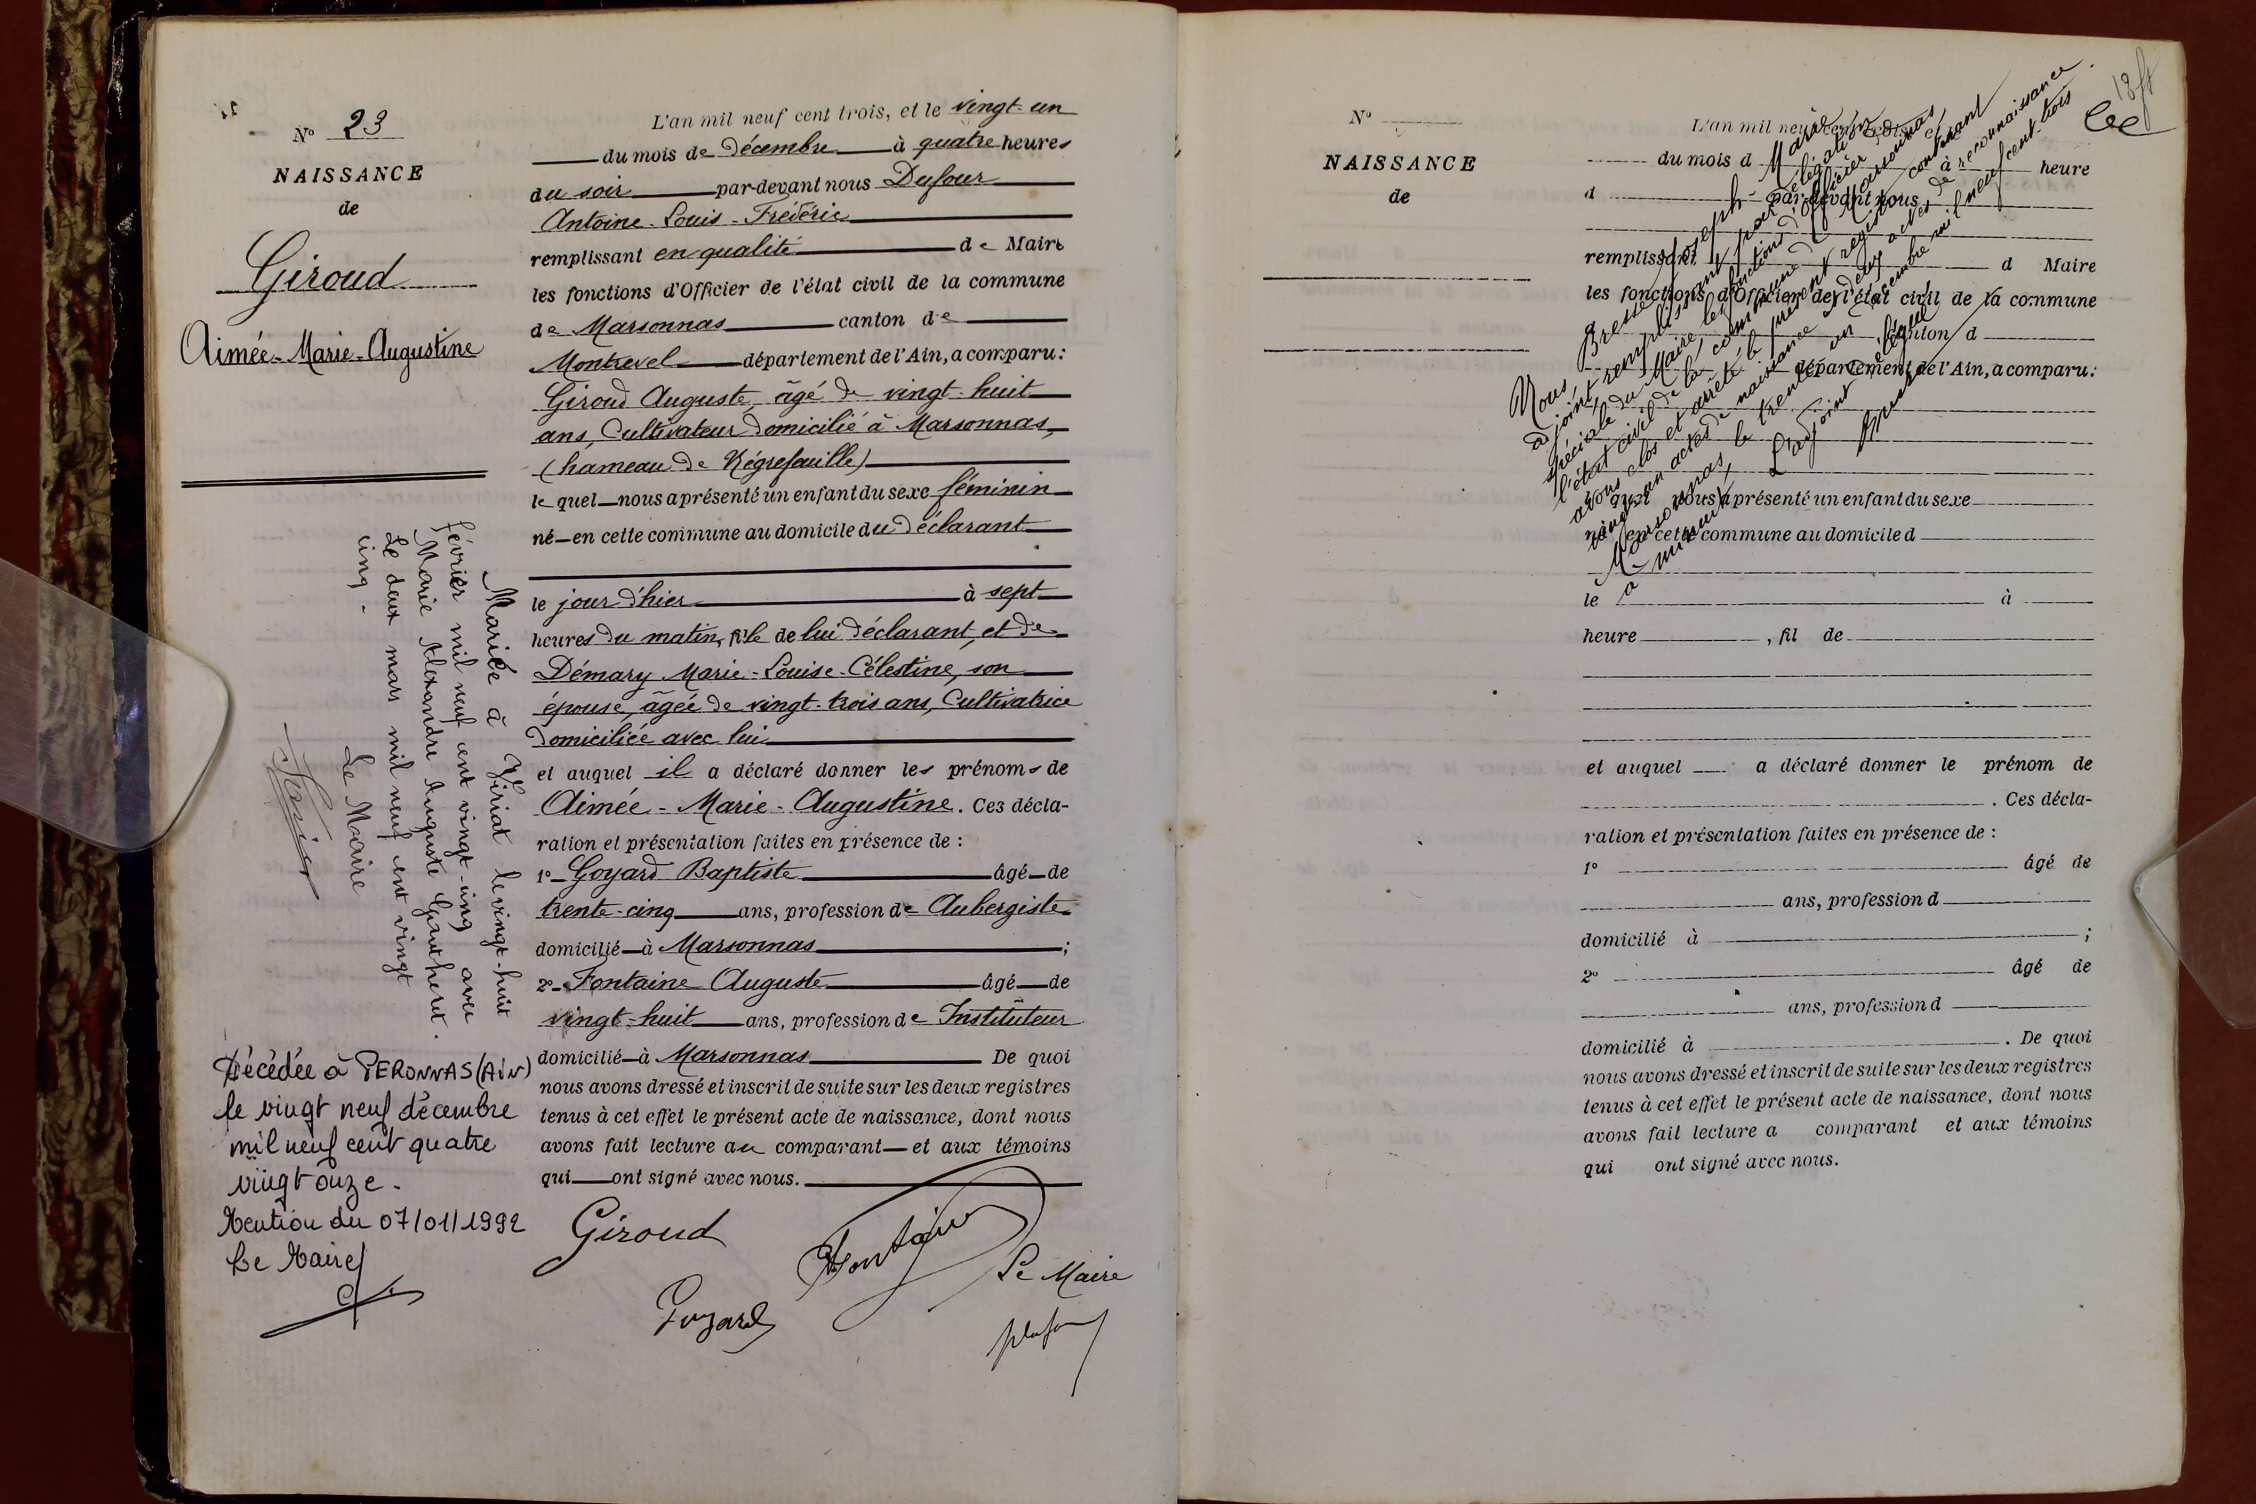 N° 23
NAISSANCE
de
Giroud
Aimée-Marie-Augustine
Mariée à Viriat le vingt-huit
février mil neuf cent vingt-cinq avec
Marie Alexandre Auguste Gautheret.
Le deux mars mil neuf cent vingt
cinq.
Le Maire
Décédée à PERONNAS (AIN)
le vingt neuf décembre
mil neuf cent quatre
vingt onze.
Mention du 07/01/1992
Le Maire
L'an mil neuf cent trois, et le vingt-un
du mois de Décembre à quatre heures
du soir par-devant nous Dufour
Antoine-Louis-Frédéric
remplissant en qualité de Maire
les fonctions d'Officier de l'état civil de la commune
de Marsonnas canton de
Montrevel département de l'Ain, a comparu:
Giroud Auguste, âgé de vingt-huit
ans, Cultivateur domicilié à Marsonnas,
(hameau de Négrefouille)
le quel nous a présenté un enfant du sexe féminin
né en cette commune au domicile du déclarant
le jour d'hier à sept
heures du matin, fille de lui déclarant, et de
Démary Marie-Louise-Célestine, son
épouse, âgée de vingt-trois ans, Cultivatrice
domiciliée avec lui
et auquel il a déclaré donner les prénoms de
Aimée-Marie-Augustine. Ces décla-
ration et présentation faites en présence de :
1° Goyard Baptiste âgé de
trente-cinq ans, profession de Aubergiste
domicilié à Marsonnas ;
2° Fontaine Auguste âgé de
vingt-huit ans, profession de Instituteur
domicilié à Marsonnas De quoi
nous avons dressé et inscrit de suite sur les deux registres
tenus à cet effet le présent acte de naissance, dont nous
avons fait lecture au comparant et aux témoins
qui ont signé avec nous.
Giroud
Fontaine
Goyard
Le Maire
Dufour
N°
NAISSANCE
de
L'an mil neuf cent trois, et le
du mois d à heure
d par-devant nous
remplissant d Maire
les fonctions d'Officier de l'état civil de la commune
d canton d
département de l'Ain, a comparu:
le quel nous a présenté un enfant du sexe
né en cette commune au domicile d
le à
heure , fil de
et auquel a déclaré donner le prénom de
. Ces décla-
ration et présentation faites en présence de :
1° âgé de
ans, profession d
domicilié à ;
2° âgé de
ans, profession d
domicilié à . De quoi
nous avons dressé et inscrit de suite sur les deux registres
tenus à cet effet le présent acte de naissance, dont nous
avons fait lecture a comparant et aux témoins
qui ont signé avec nous.
Nous, Bresse Joseph-Marie
adjoint, remplissant par délégation
spéciale du Maire, les fonctions d'officier de
l'état civil de la commune de Marsonnas
avons clos et arrêté le présent registre contenant
vingt-un actes de naissance et deux actes de reconnaissance.
à Marsonnas, le trente un décembre mil neuf cent trois
à minuit,
L'adjoint délégué